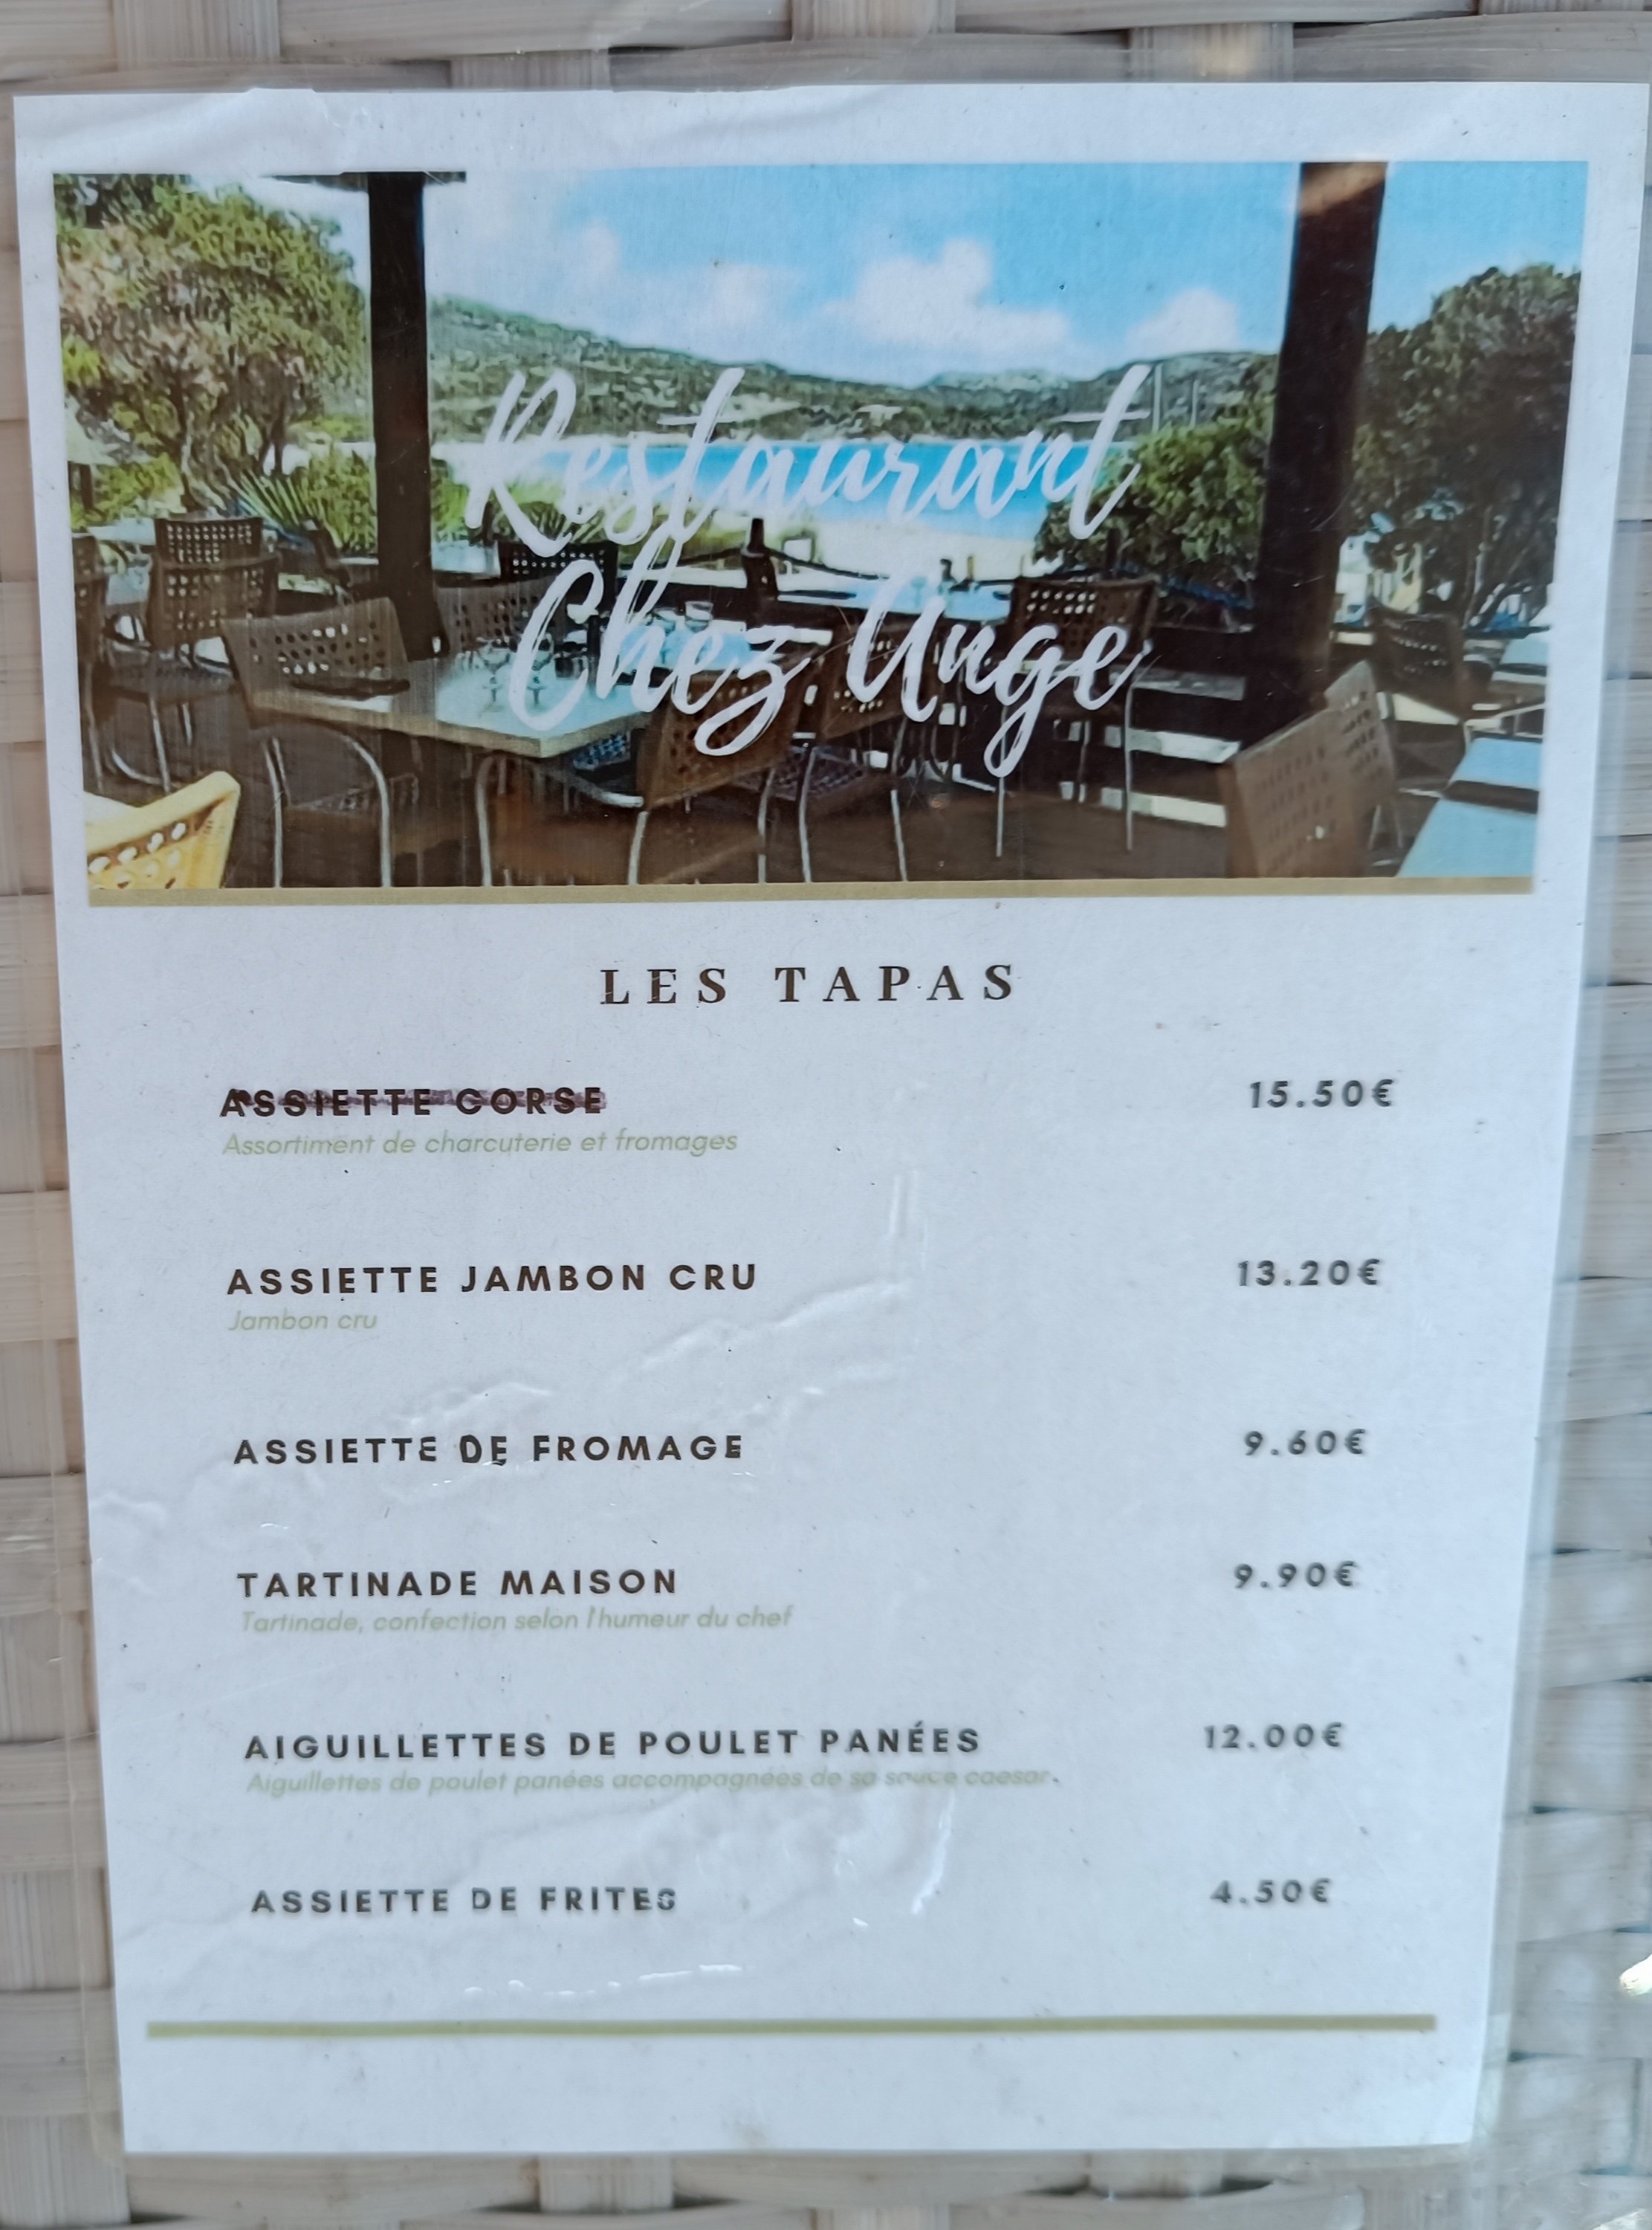 Restaurant
Chez Ange
LES TAPAS
ASSIETTE CORSE 15.50€
Assortiment de charcuterie et fromages
ASSIETTE JAMBON CRU 13.20€
Jambon cru
ASSIETTE DE FROMAGE 9.60€
TARTINADE MAISON 9.90€
Tartinade, confection selon l'humeur du chef
AIGUILLETTES DE POULET PANÉES 12.00€
Aiguillettes de poulet panées accompagnées de sa sauce caesar.
ASSIETTE DE FRITES 4.50€